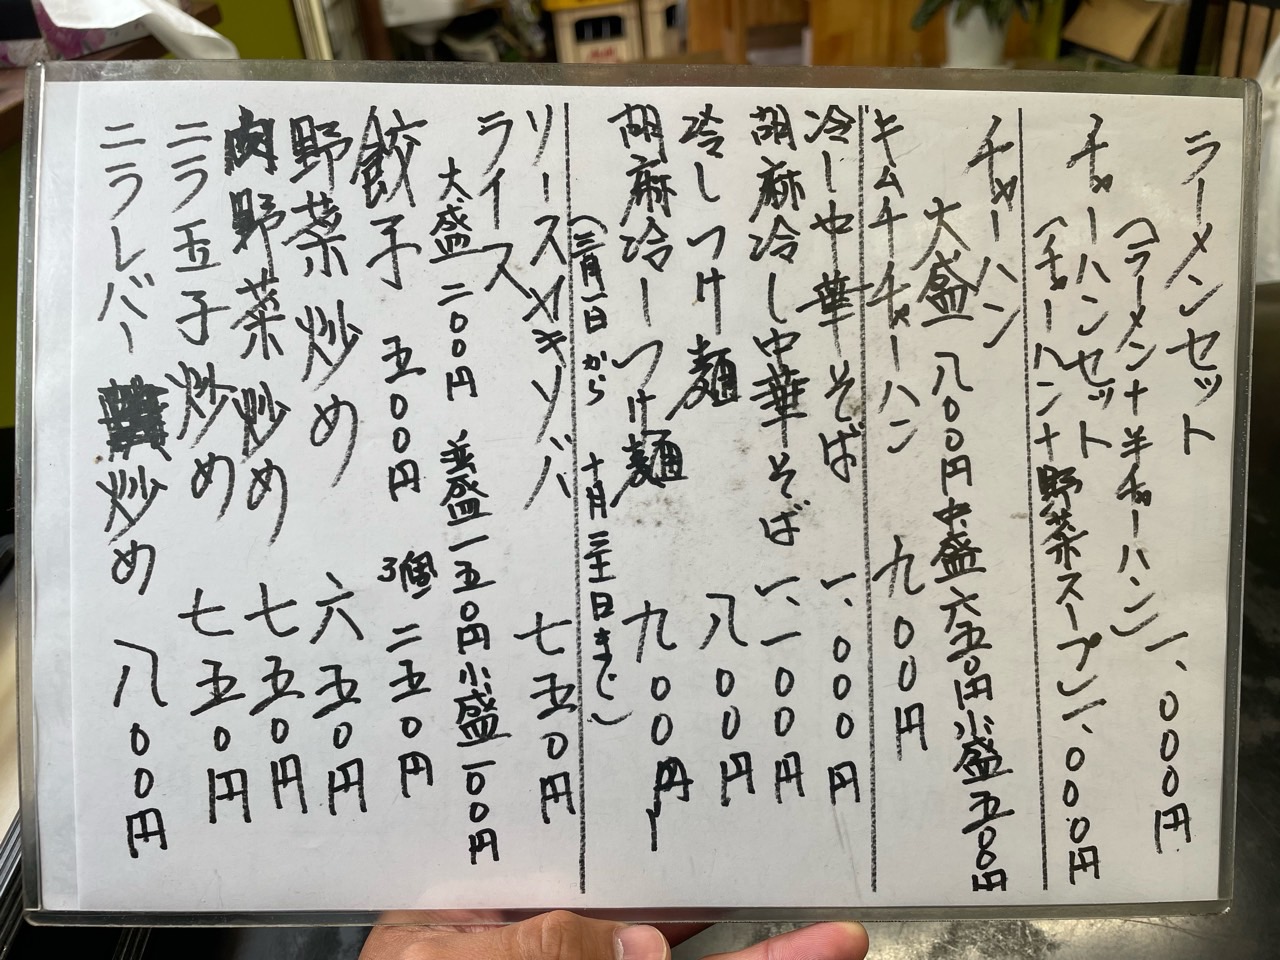 ラーメンセット
（ラーメン＋半チャーハン）一、〇〇〇円
チャーハンセット
（チャーハン＋野菜スープ）一、〇〇〇円
チャーハン
大盛 八〇〇円 中盛 六五〇円 小盛 五〇〇円
キムチチャーハン 九〇〇円
冷し中華そば 一、〇〇〇円
胡麻冷し中華そば 一、一〇〇円
冷しつけ麺 八〇〇円
胡麻冷しつけ麺 九〇〇円
（三月一日から 十月三十一日まで）
ソースヤキソバ 七五〇円
ライス
大盛 二〇〇円 並盛 一五〇円 小盛 一〇〇円
餃子 五〇〇円 3個 二五〇円
野菜炒め 六五〇円
肉野菜炒め 七五〇円
ニラ玉子炒め 七五〇円
ニラレバー炒め 八〇〇円